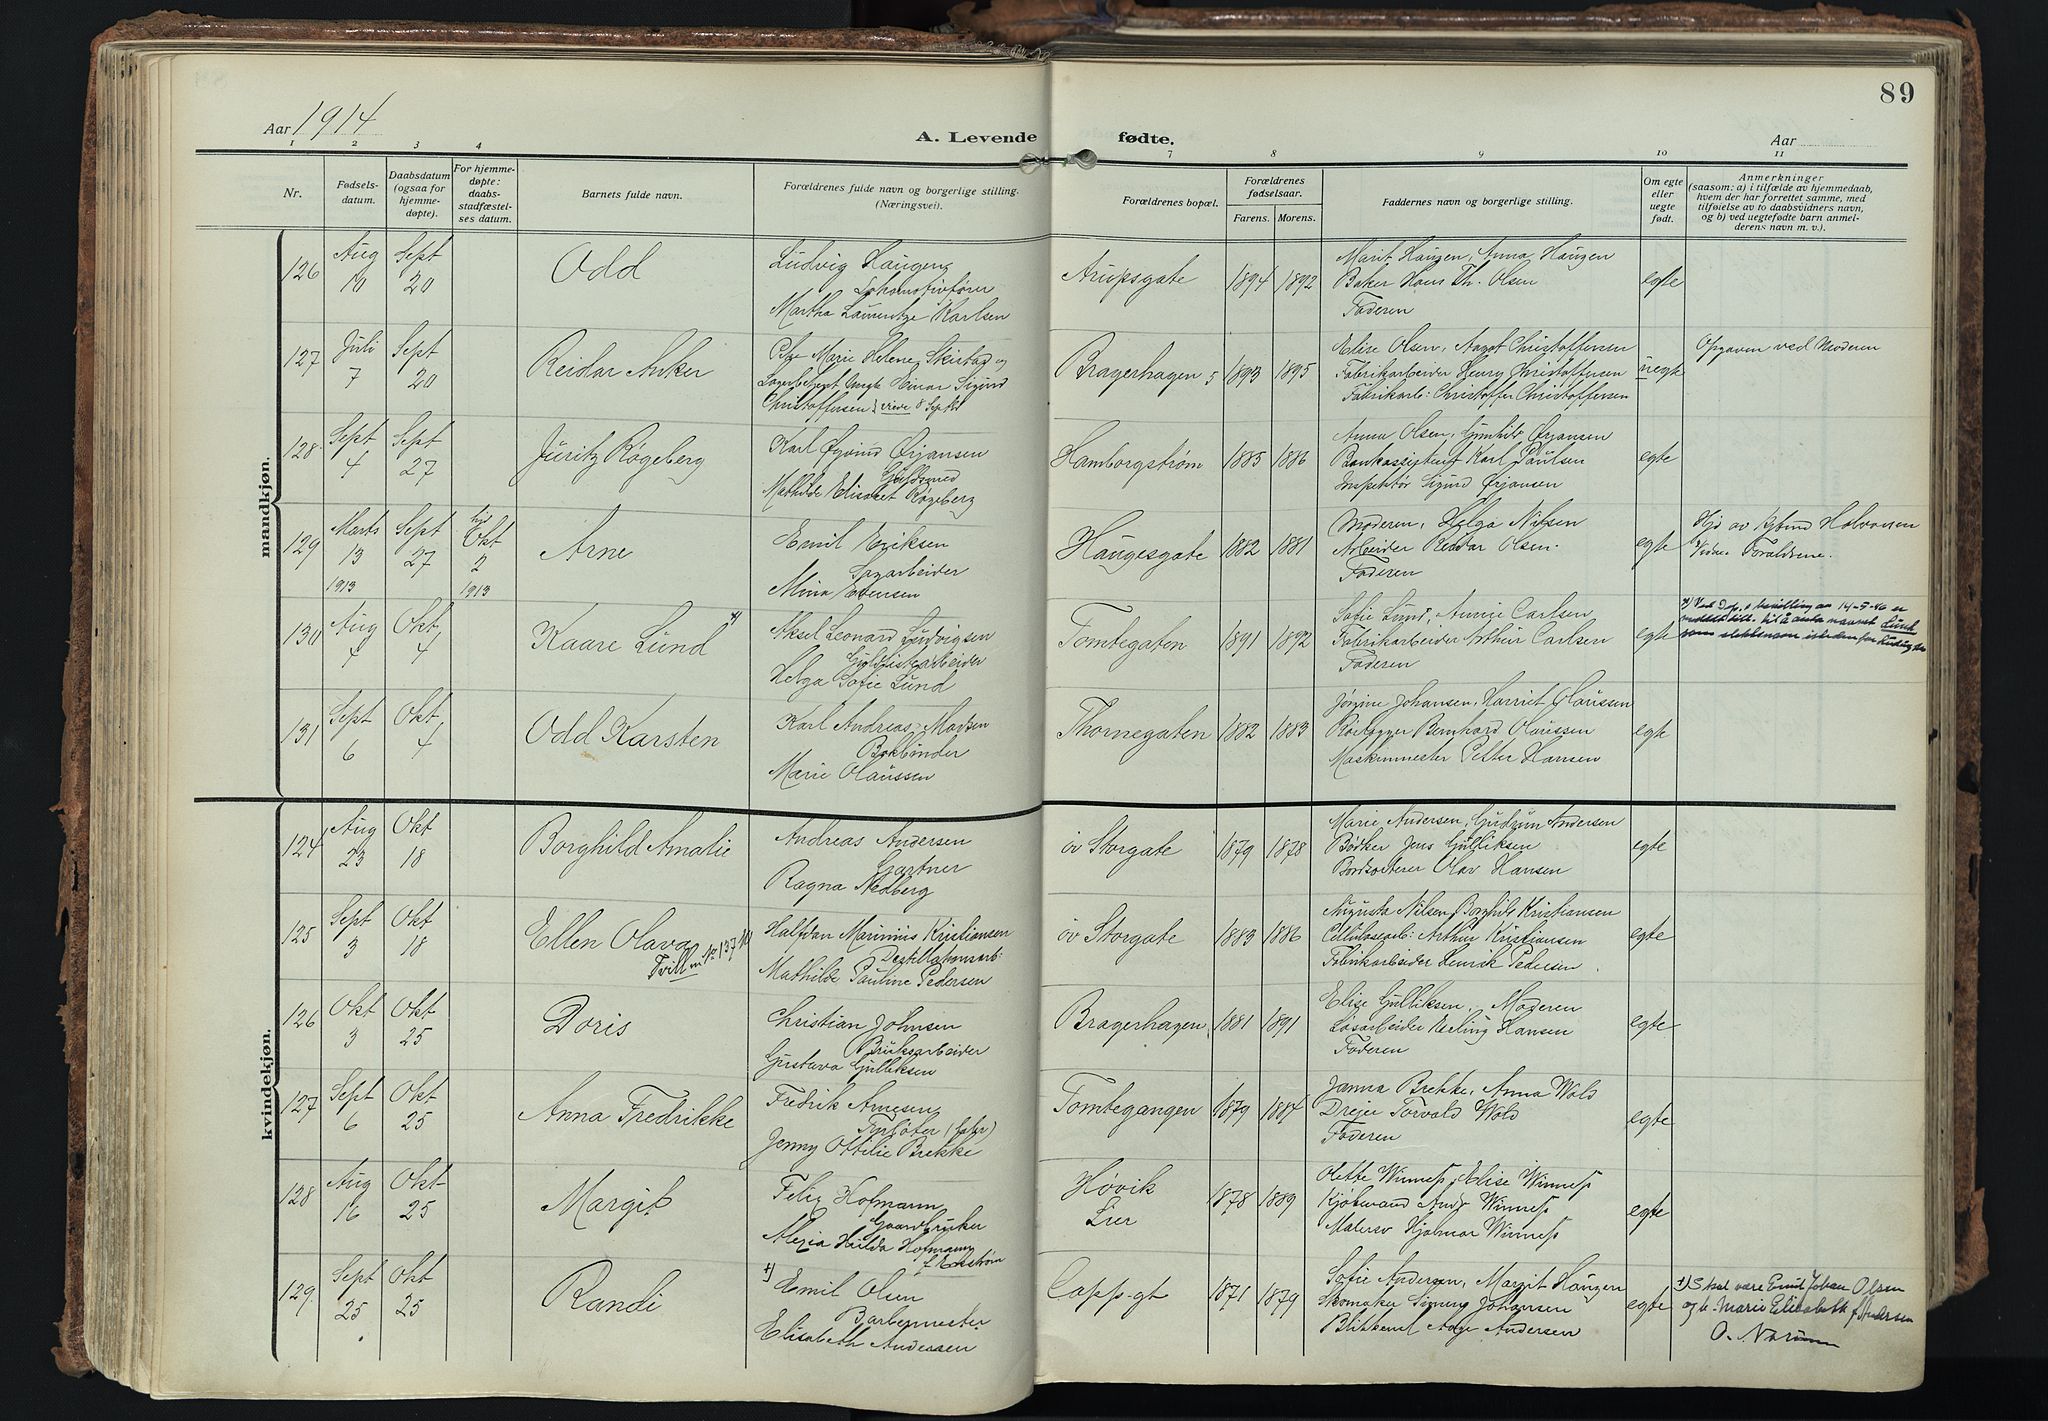 89
Aar 1914
A. Levende fødte.
Aar
1 2 3 4 7 8 9 10 11
Nr.
Fødsels-
datum.
Daabsdatum
(ogsaa for
hjemme-
døpte).
For hjemme-
døpte:
daabs-
stadfæstel-
ses datum.
Barnets fulde navn.
Forældrenes fulde navn og borgerlige stilling.
(Næringsvei).
Forældrenes bopæl.
Forældrenes
fødselsaar.
Farens. Morens.
Faddernes navn og borgerlige stilling.
Om egte
eller
uegte
født.
Anmerkninger
(saasom: a) i tilfælde av hjemmedaab,
hvem der har forrettet samme, med
tilføielse av to daabsvidners navn,
og b) ved uegtefødte barn anmel-
derens navn m. v.).
mandkjøn.
126 Aug 19 Sept 20 Odd
Ludvig Haugen
Lokomotivfører
Martha Laurentze Karlsen
Arupsgate 1894 1892
Marit Haugen, Anna Haugen
Baker Hans Th. Olsen
Faderen
egte
127 Juli 7 Sept 20 Reidar Anker
Marie Helene Skirstad og
Einar Sigurd
Christoffersen viede 8 Sept
Bragerhagen 5 1893 1895
Elise Olsen, Aagot Christoffersen
Fabrikarbeider Henry Christoffersen
Fabrikarb: Christoffer Christoffersen
uegte
Opgaven ved Moderen
128 Sept 4 Sept 27 Juritz Røgeberg
Karl Øyvind Ørjansen
Guldsmed
Mathilde Elisabet Røgeberg
Hamborgstrøm 1885 1886
Anna Olsen, Gunhild Ørjansen
Bankassistent Karl Paulsen
Inspektør Sigurd Ørjansen
egte
129 Marts 13 1913 Sept 27 Okt 2 1913 Arne
Emil Eriksen
Sagarbeider
Mina Evensen
Haugesgate 1882 1881
Moderen, Helga Nilsen
Arbeider Reidar Olsen.
Faderen
egte
Hjd av Halvorsen
Vidner Forældrene.
130 Aug 4 Okt 4 Kaare Lund x)
Aksel Leonard Ludvigsen
Guldlistearbeider
Helga Sofie Lund
Tomtegaten 1891 1892
Sofie Lund, Carlsen
Fabrikarbeider Arthur Carlsen
Faderen
egte
x) Ved Dep.s bevilling av 14-5-40 er
meddelt till. til å anta navnet Lund
som slektsnavn istedenfor Ludvigsen
131 Sept 6 Okt 4 Odd Karsten
Karl Andreas Madsen
Bokbinder
Marie Olaussen
Thornegaten 1882 1883
Jørgine Johansen, Harriet Olaussen
Rørlægger Bernhard Olaussen
Maskinmester Petter Hansen
egte
kvindekjøn.
124 Aug 23 Okt 18 Borghild Amalie
Andreas Andersen
Gartner
Ragna Nedberg
øv Storgate 1879 1878
Marie Andersen, Gudrun Andersen
Bødker Jens Gulliksen
Bordsorterer Olav Hansen
egte
125 Sept 3 Okt 18 Ellen Olava
Tvill m No 137
Halfdan Marinius Kristiansen
Destillationsarb:
Mathilde Pauline Pedersen
øv Storgate 1883 1886
Augusta Nilsen, Borghild Kristiansen
Cellulosearb: Arthur Kristiansen
Fabrikarbeider Henrik Pedersen
egte
126 Okt 3 Okt 25 Doris
Christian Johnsen
Bruksarbeider
Gustava Gulliksen
Bragerhagen 1881 1891
Elise Gulliksen, Moderen
Løsarbeider Erling Hansen
Faderen
egte
127 Sept 6 Okt 25 Anna Fredrikke
Fredrik Arnesen
Jenny Ottilie Brekke
Tomtegangen 1879 1884
Janna Brekke, Anna Wold
Dreier Torvald Wold
Faderen
egte
128 Aug 16 Okt 25 Margit
Felix Hofmann
Gaardbruker
Alexia Hulda Hofmann
f. Enstrøm
Høvik
Lier
1878 1889
Olette Winness, Elise Winness
Kjøbmand Andr Winness
Malersv Hjalmar Winness
egte
129 Sept 25 Okt 25 Randi
+) Emil Olsen
Barbermester
Elisabeth Andersen
Capp.gt 1871 1879
Sofie Andersen, Margit Haugen
Skomaker Johansen
Aage Andersen
egte
+) Skal være Emil Johan Olsen
og Marie Elisabeth f. Andersen